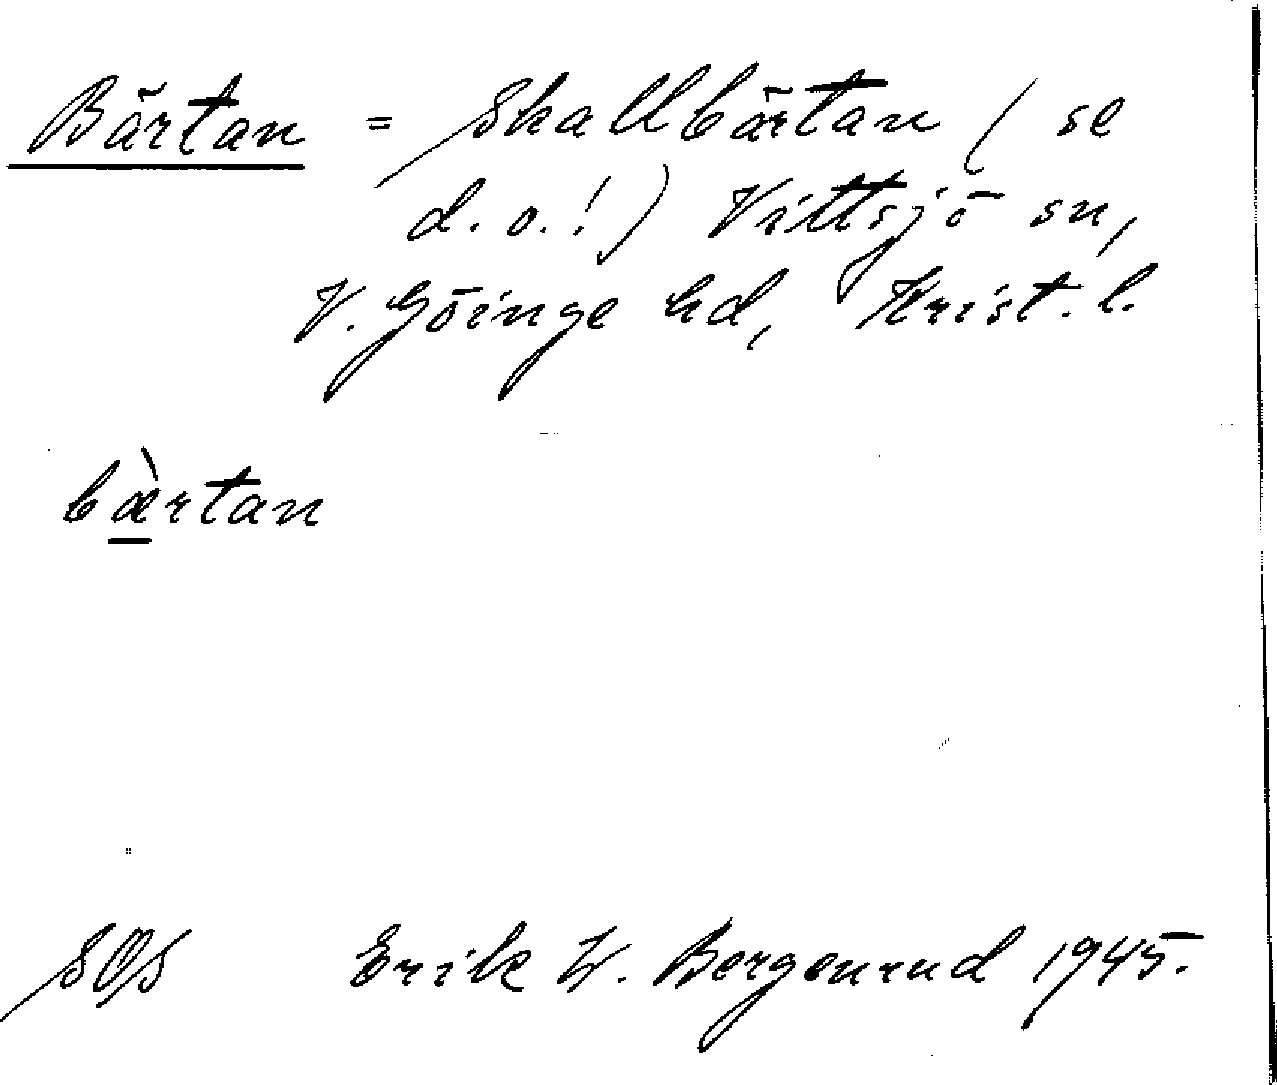 Bärtan = Skallbärtan (se
d. o.!) Vittsjö sn,
V. Göinge hd, Krist. l.
bæ̀rtan
SOS Erik W. Bergenrud 1945.